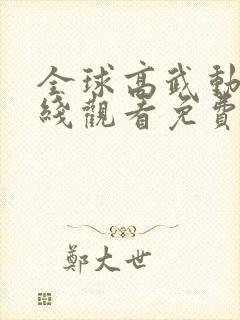 全球高武動
綫觀看免費
鄭大世